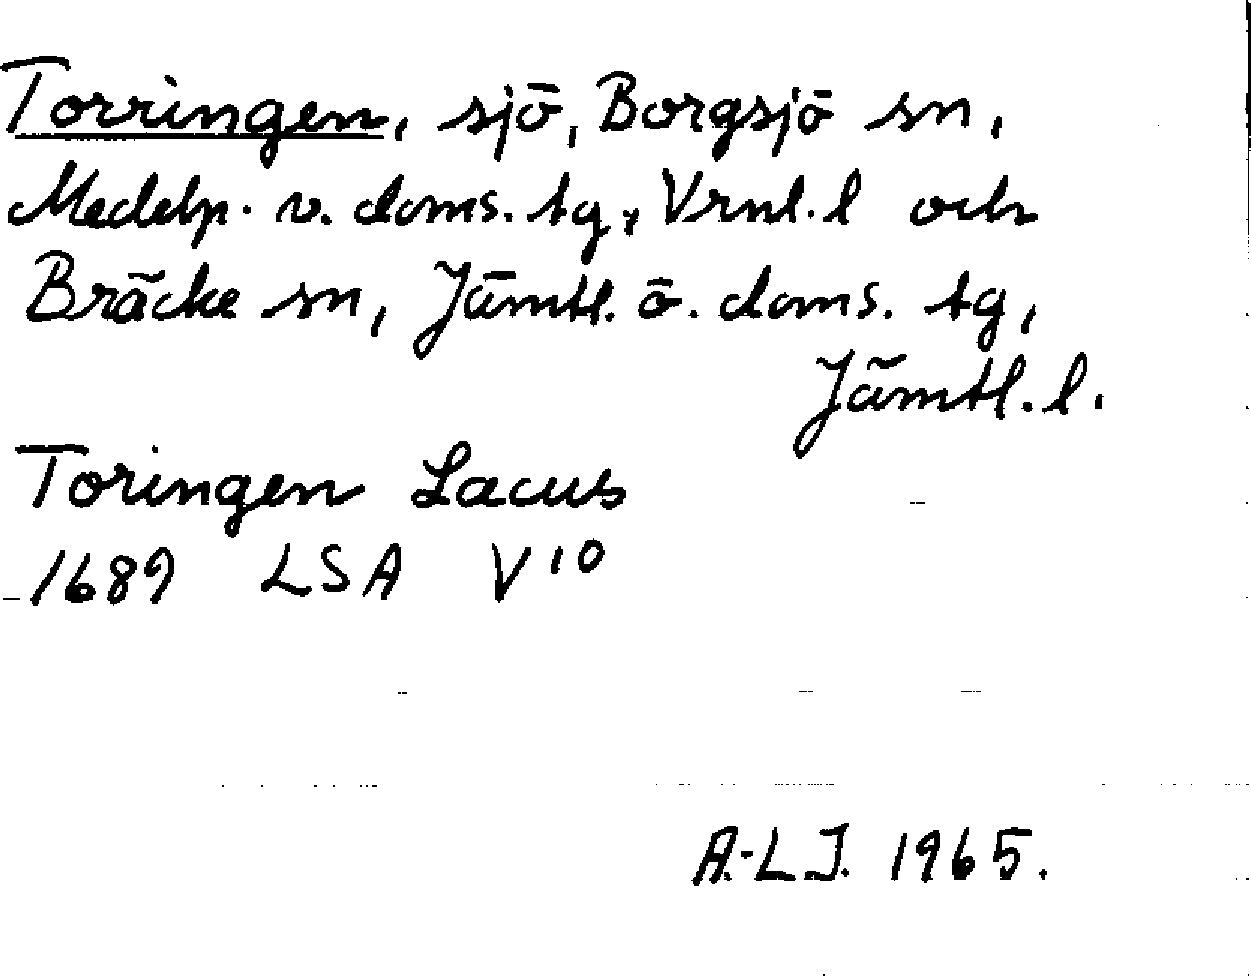 Torringen, sjö, Borgsjö sn,
Medelp. v. doms. tg, Vrnl. l och
Bräcke sn, Jämtl. ö. doms. tg,
Jämtl. l.
Toringen Lacus
1689 LSA V 10
A.-L.J. 1965.